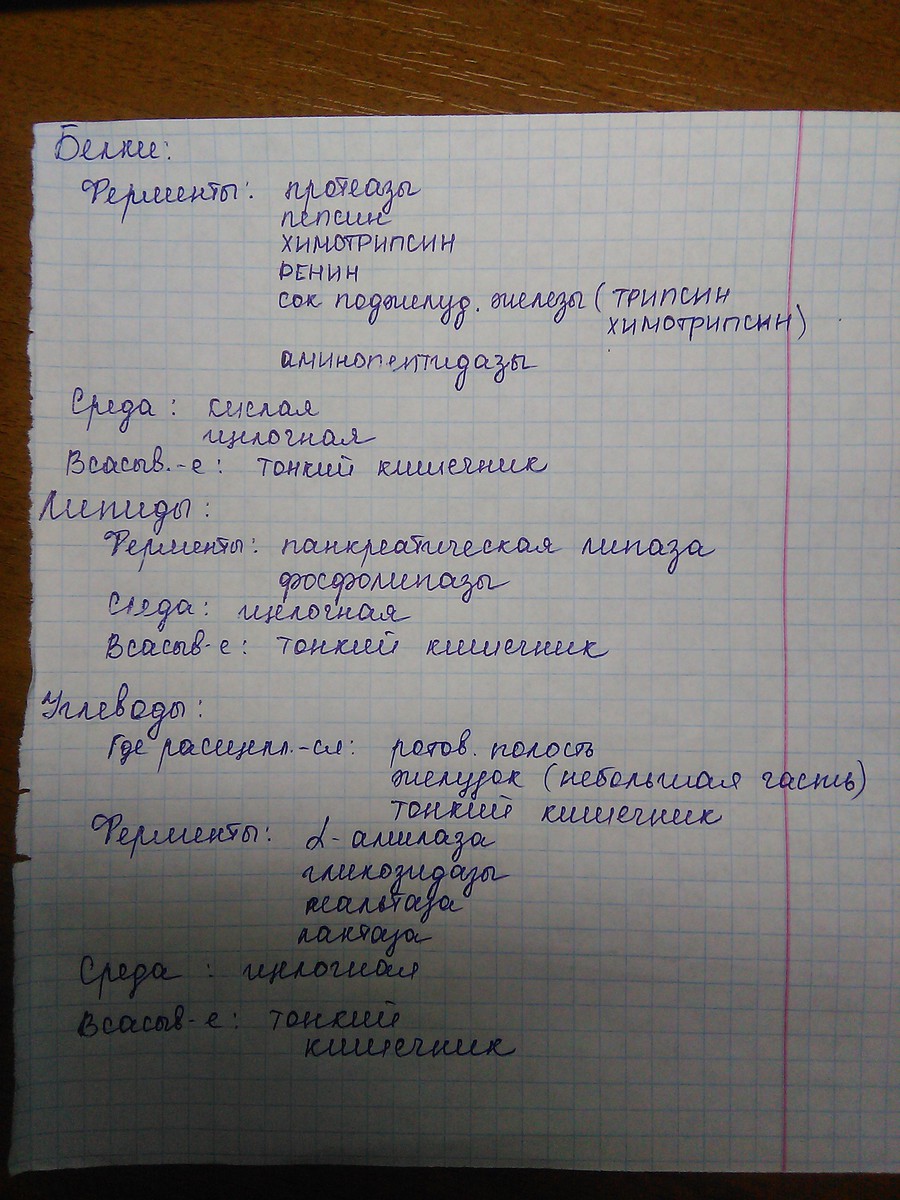 Белки:
Ферменты: протеазы
пепсин
химотрипсин
ренин
сок поджелуд. железы (трипсин
химотрипсин)
аминопептидазы
Среда: кислая
щелочная
Всасыв.-е: тонкий кишечник
Липиды:
Ферменты: панкреатическая липаза
фосфолипазы
Среда: щелочная
Всасыв-е: тонкий кишечник
Углеводы:
Где расщепл.-ся: ротов. полость
желудок (небольшая часть)
тонкий кишечник
Ферменты: α-амилаза
гликозидазы
мальтаза
лактаза
Среда: щелочная
Всасыв-е: тонкий
кишечник